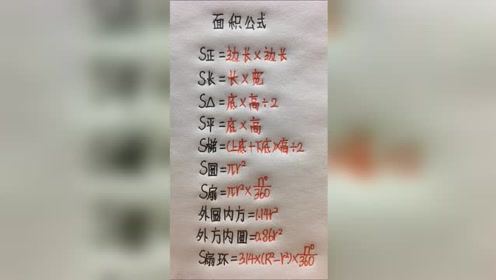 面积公式
S正=边长×边长
S长=长×宽
S△=底×高÷2
S平=底×高
S梯=(上底+下底)×高÷2
S圆=πr²
S扇=πr²×n°/360
外圆内方=1.14r²
外方内圆=0.86r²
S扇环=3.14×(R²-r²)×n°/360